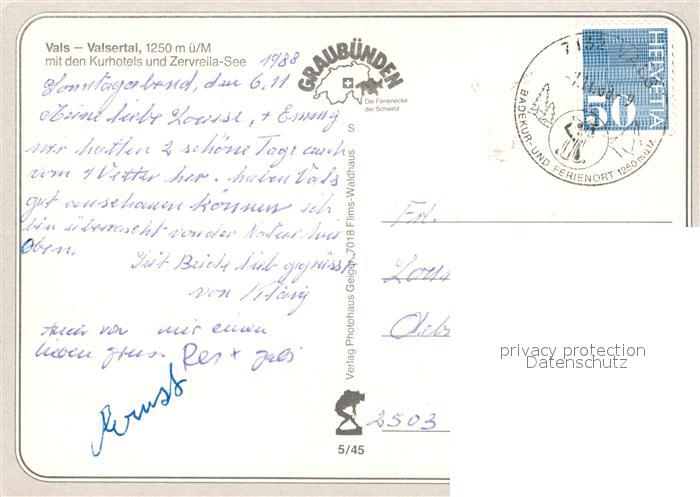 Vals – Valsertal, 1250 m ü/M
mit den Kurhotels und Zervreila-See
1988
Sonntagabend, den 6.11
Meine liebe Louise, +
wir hatten 2 schöne Tage auch
vom Wetter her. haben Vals
gut anschauen können ich
bin überrascht von der Natur hier
oben.
Seit Beide lieb gegrüsst
von
Auch von mir einen
lieben gruss
Ernst
GRAUBÜNDEN
Die Ferienecke
der Schweiz
S
Verlag Photohaus Geiger, 7018 Flims-Waldhaus
5/45
7132 VALS
BADEKUR- UND FERIENORT 1250 m ü.M.
HELVETIA
50
Fr.
2503
privacy protection
Datenschutz